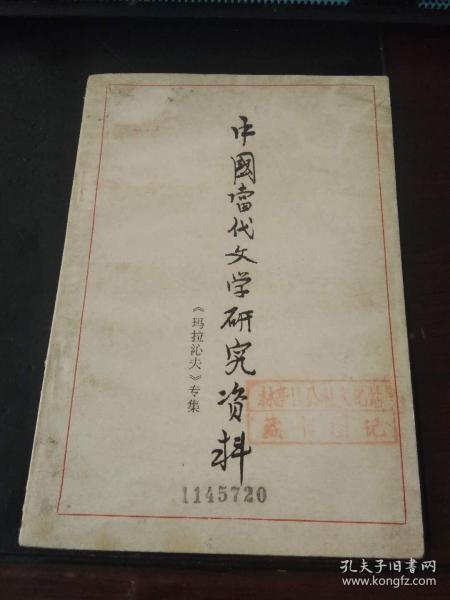 中國當代文学研究资料
《玛拉沁夫》专集
1145720
孔夫子旧书网
www.kongfz.com